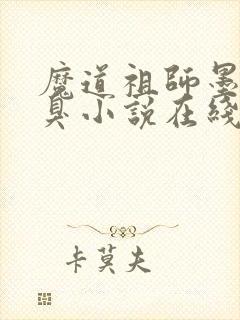 魔道祖師墨
臭小說在綫
卡莫夫